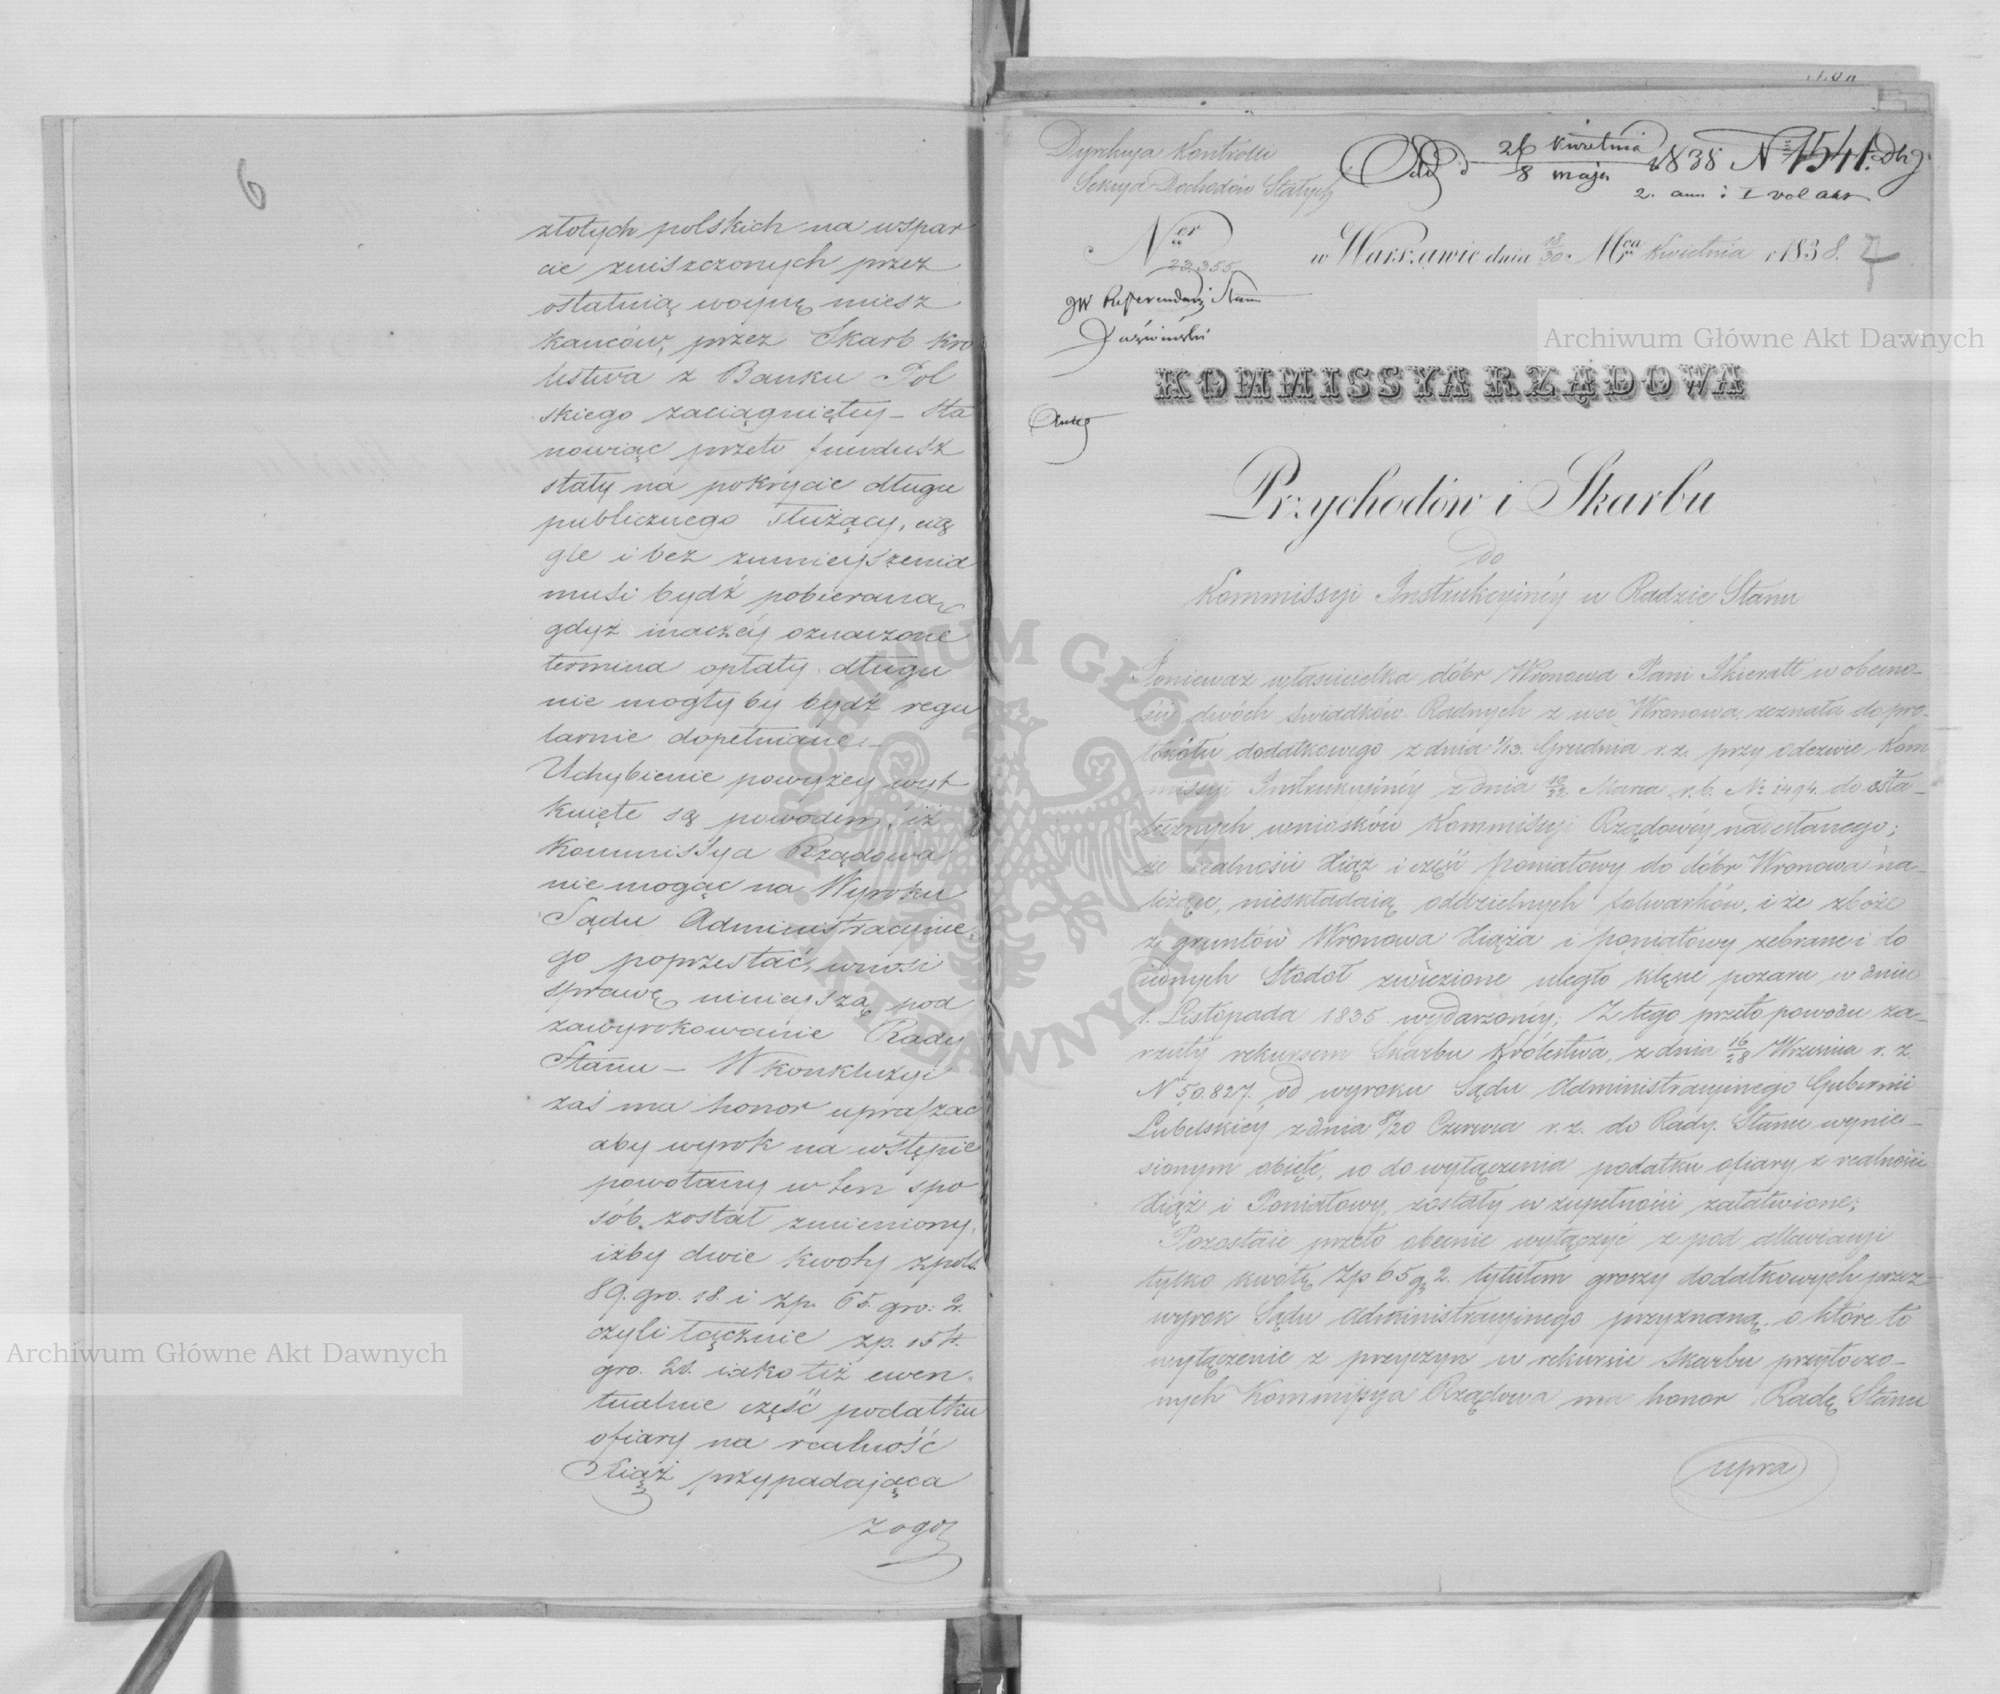 6
złotych polskich na wspar
cie zniszczonych przez
ostatnią woynę miesz
kańców, przez Skarb Kro
lestwa z Banku Pol
skiego zaciągnięty – sta
nowiąc przeto fundusz
stały na pokrycie długu
publicznego służący, cią
gle i bez zmnieyszenia
musi bydź pobieraną
gdyż inaczéy oznaczone
termina opłaty długu
nie mogły by bydź regu
larnie dopełniane.–
Uchybienie powyżey wyt
knięte są powodem, iż
Kommissya Rządowa
nie mogąc na Wyroku
Sądu Administracyine
go poprzestać, wnosi
sprawę ninieyszą pod
zawyrokowanie Rady
Stanu – W konkluzyi
zaś ma honor upraszać
aby wyrok na wstępie
powołany w ten spo
sób został zmieniony,
iżby dwie kwoty zpols
89. gro. 18. i zp. 65. gro: 2.
czyli łącznie zp. 154.
gro. 20. iako też ewen
tualnie część podatku
ofiary na realność
Kiąż przypadaiąca
z ogó
Dyrekcya Kontrolli
Sekcya Dochodów Stałych
Ner
23,355
JW Referendarz Stanu
Odd d 26 Kwietnia / 8 maja 1838 N 1541.
2. ann: i I vol akt
w Warszawie dnia 18/30 Mca Kwietnia r 1838. 7
KOMMISSYA RZĄDOWA
Przychodów i Skarbu
do
Kommissyi Instrukcyinéy w Radzie Stanu
Ponieważ właścicielka dóbr Wronowa Pani Skieratt w obecno–
ści dwóch świadków Radnych z wsi Wronowa, zeznała do pro–
tokółu dodatkowego z dnia 1/13. Grudnia r. z. przy odezwie Kom
missyi Instrukcyinéy z dnia 10/22. Marca r. b. No 1494. do osta–
tecznych wniosków Kommissyi Rządowéy nadesłanego;
że realności Kiąż i część Poniatowy do dóbr Wronowa na–
leżące, nieskładaią oddzielnych folwarków, i że zboże
z gruntów Wronowa Kiąża i Poniatowy zebrane i do
iednych Stodół zwiezione uległo klęsce pożaru w dniu
1. Listopada 1835 wydarzonéy; Z tego przeto powodu za–
rzuty rekursem Skarbu Królestwa, z dnia 16/28 Września r. z.
N 50.827. od wyroku Sądu Administracyinego Gubernii
Lubelskiéy z dnia 8/20 Czerwca r. z. do Rady Stanu wynie–
sionym obięte, co do wyłączenia podatku ofiary z realności
Kiąż i Poniatowy, zostały w zupełności załatwione;
Pozostaie przeto obecnie wyłączyć z pod alleviacyi
tylko kwotę Zp 65 gr 2. tytułem groszy dodatkowych przez
wyrok Sądu Administracyinego przyznaną, o które to
wyłączenie z przyczyn w rekursie Skarbu przytoczo–
nych Kommissya Rządowa ma honor Radę Stanu
upra
Archiwum Główne Akt Dawnych
Archiwum Główne Akt Dawnych
ARCHIWUM GŁÓWNE AKT DAWNYCH